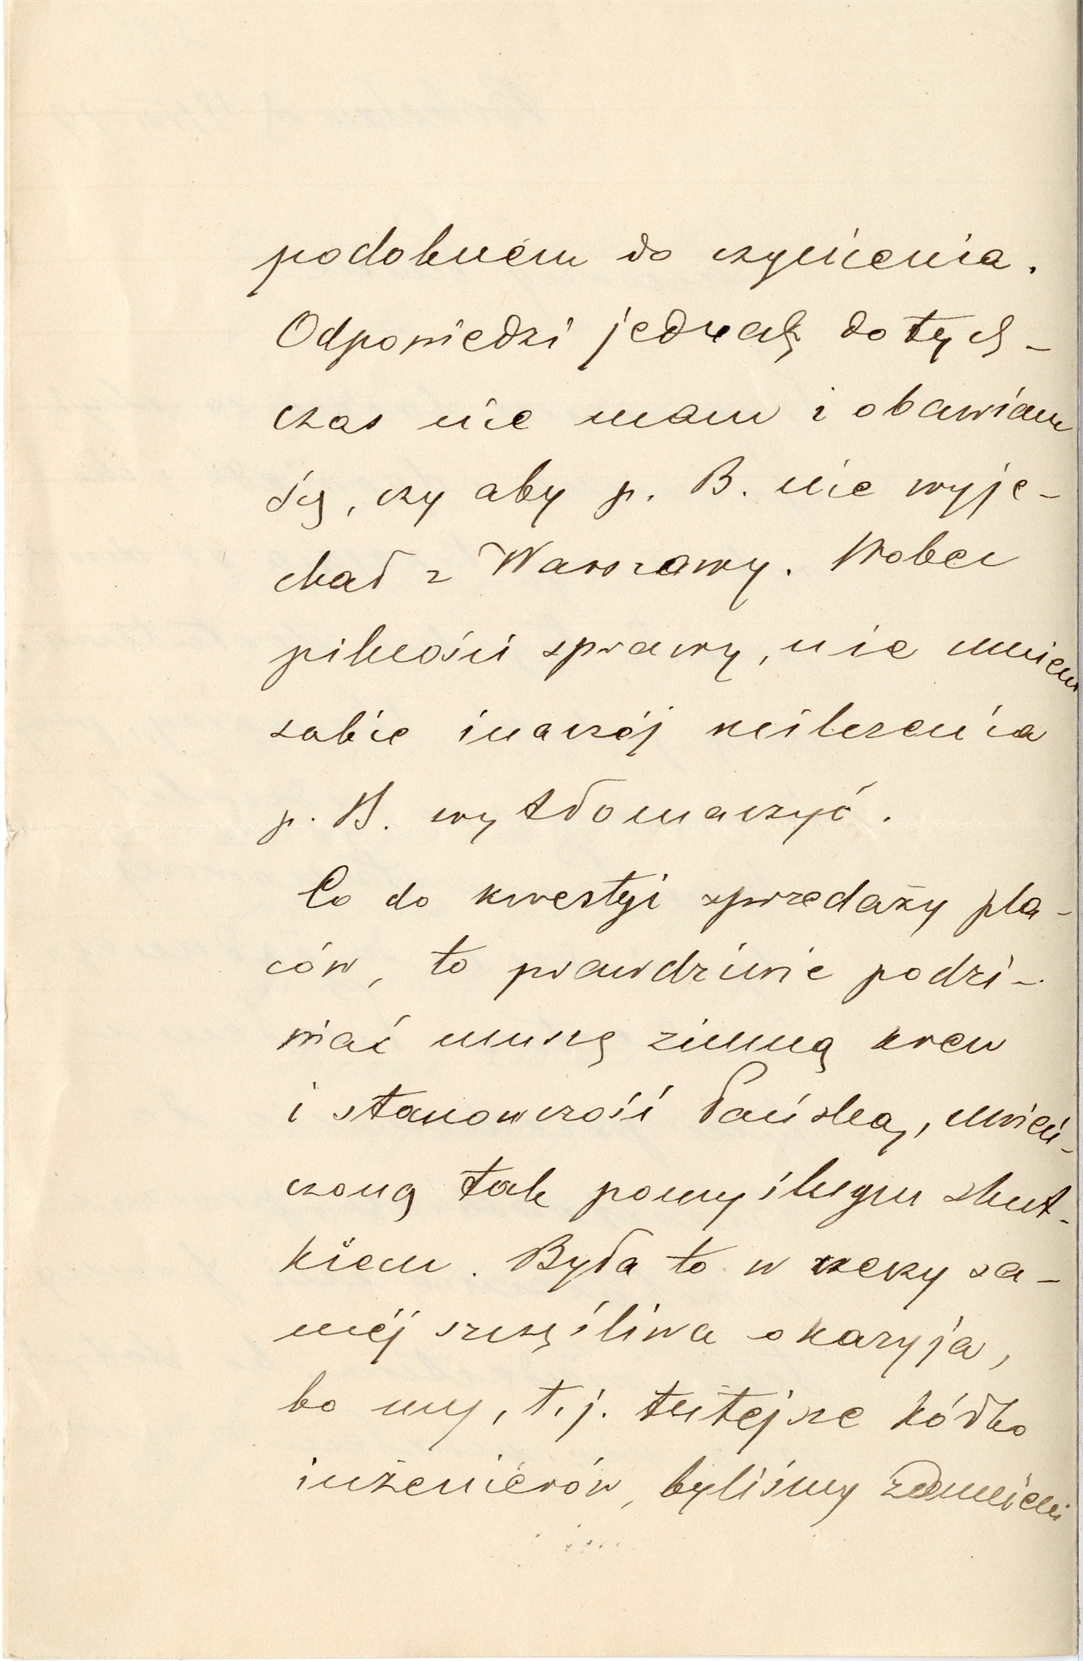 podobném do życzenia.
Odpowiedzi jednak dotych-
czas nie mam i obawiam
się, czy aby p. B. nie wyje-
chał z Warszawy. Wobec
pilności sprawy, nie umiem
sobie inaczéj milczenia
p. B. wytłomaczyć.
Co do kwestyi sprzedaży pla-
ców, to prawdziwie podzi-
wiać muszę zimną krew
i stanowczość Pańską, uwień-
czoną tak pomyślnym skut-
kiem. Była to w rzeczy sa-
méj szczęśliwa okazyja,
bo my, t. j. tutejsze kółko
inżenierów, byliśmy zdumieni